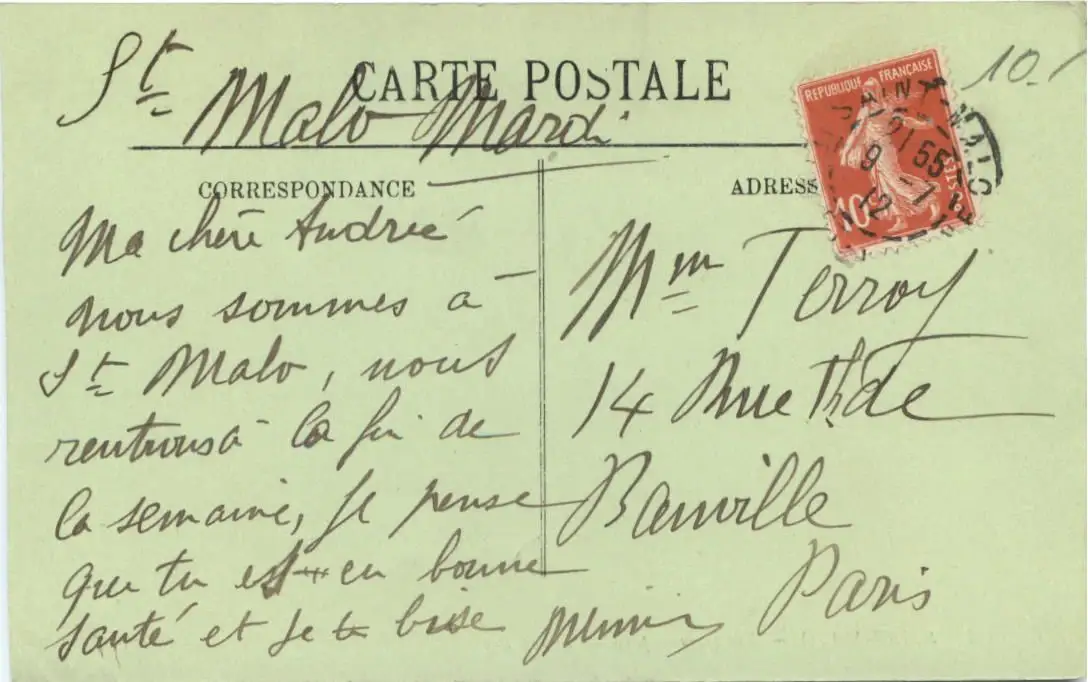 CARTE POSTALE
10.-
St Malo Mardi
CORRESPONDANCE
ADRESS
REPUBLIQUE FRANÇAISE
POSTES
10c
SAINT-MALO
9 -7
12
Ma chère Andrée
nous sommes à
St Malo, nous
rentrons à la fin de
la semaine, je pense
que tu es en bonne
santé et je te bise
Mimi
Mme Terroy
14 Rue Th de
Banville
Paris